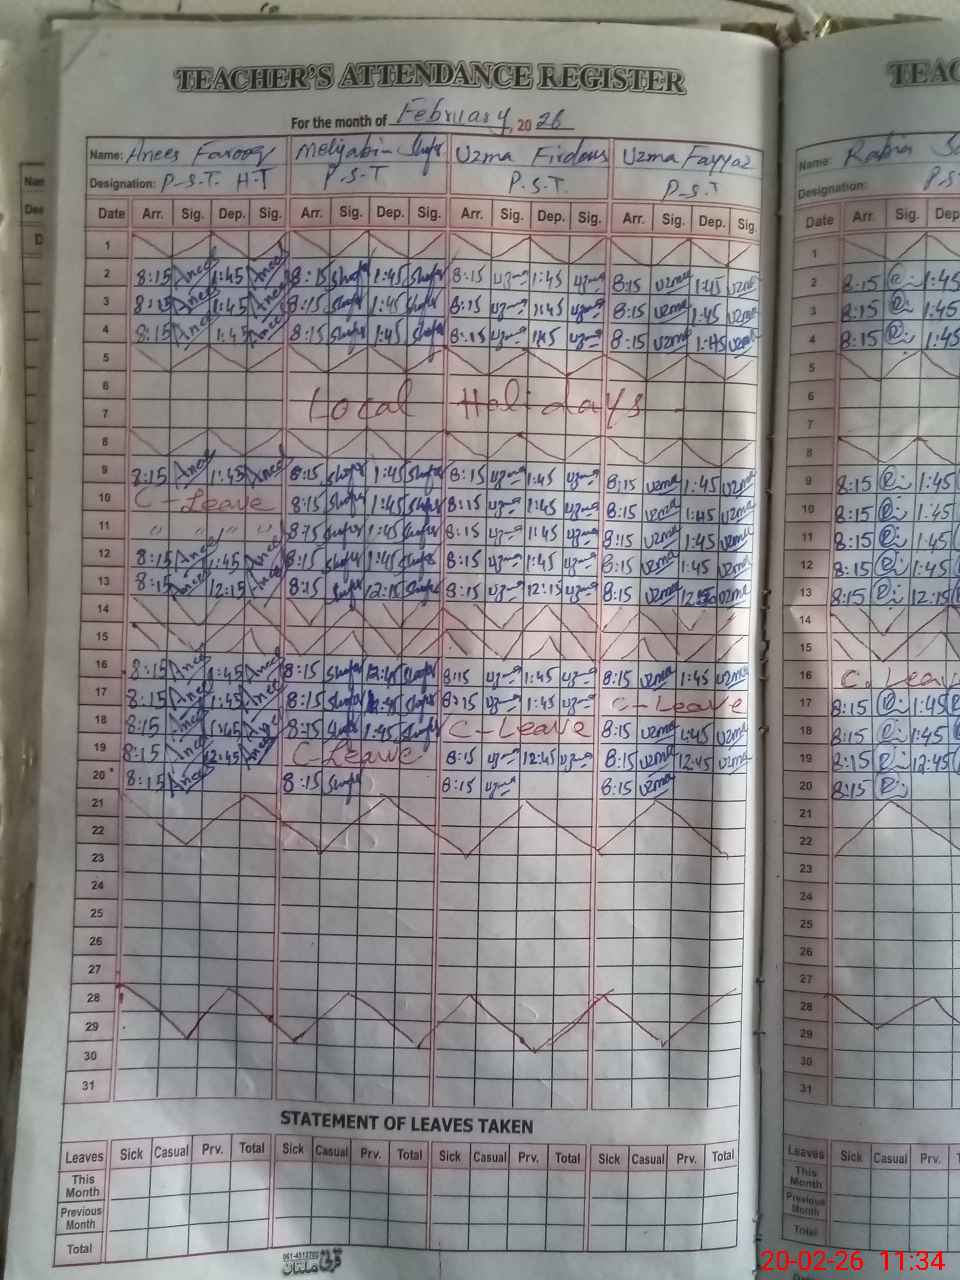 TEACHER'S ATTENDANCE REGISTER
For the month of February, 2026
Name: Anees Farooq Uzma Firdous Uzma Fayyaz
Designation: P-S.T. H.T P.S.T P.S.T. P-S.T
Date Arr. Sig. Dep. Sig. Arr. Sig. Dep. Sig. Arr. Sig. Dep. Sig. Arr. Sig. Dep. Sig.
1
2 8:15 Anees 1:45 Anees 8:15 1:45 8:15 1:45 8:15 uzma 1:45 uzma
3 8:15 Anees 1:45 Anees 8:15 1:45 8:15 1:45 8:15 uzma 1:45 uzma
4 8:15 Anees 1:45 Anees 8:15 1:45 8:15 1:45 8:15 uzma 1:45 uzma
5
6
7 Local Holidays
8
9 8:15 Anees 1:45 Anees 8:15 1:45 8:15 1:45 8:15 uzma 1:45 uzma
10 C-Leave 8:15 1:45 8:15 1:45 8:15 uzma 1:45 uzma
11 " " " " 8:15 1:45 8:15 1:45 8:15 uzma 1:45 uzma
12 8:15 Anees 1:45 Anees 8:15 1:45 8:15 1:45 8:15 uzma 1:45 uzma
13 8:15 Anees 12:15 Anees 8:15 12:15 8:15 12:15 8:15 uzma uzma
14
15
16 8:15 Anees 1:45 Anees 8:15 8:15 1:45 8:15 uzma 1:45 uzma
17 8:15 Anees 1:45 Anees 8:15 8:15 1:45 C-Leave
18 8:15 Anees 1:45 Anees 8:15 1:45 C-Leave 8:15 uzma 1:45 uzma
19 8:15 Anees 12:45 Anees C-Leave 8:15 12:45 8:15 uzma 12:45 uzma
20 8:15 Anees 8:15 8:15 8:15 uzma
21
22
23
24
25
26
27
28
29
30
31
STATEMENT OF LEAVES TAKEN
Leaves Sick Casual Prv. Total Sick Casual Prv. Total Sick Casual Prv. Total Sick Casual Prv. Total
This Month
Previous Month
Total
TEAC
Name: Rabia
Designation: P.S
Date Arr. Sig. Dep
1
2 8:15 1:45
3 8:15 1:45
4 8:15 1:45
5
6
7
8
9 8:15 1:45
10 8:15 1:45
11 8:15 1:45
12 8:15 1:45
13 8:15 12:15
14
15
16 C. Leav
17 8:15 1:45
18 8:15 1:45
19 8:15 12:45
20 8:15
21
22
23
24
25
26
27
28
29
30
31
Leaves Sick Casual Prv.
This Month
Previous Month
Total
20-02-26 11:34